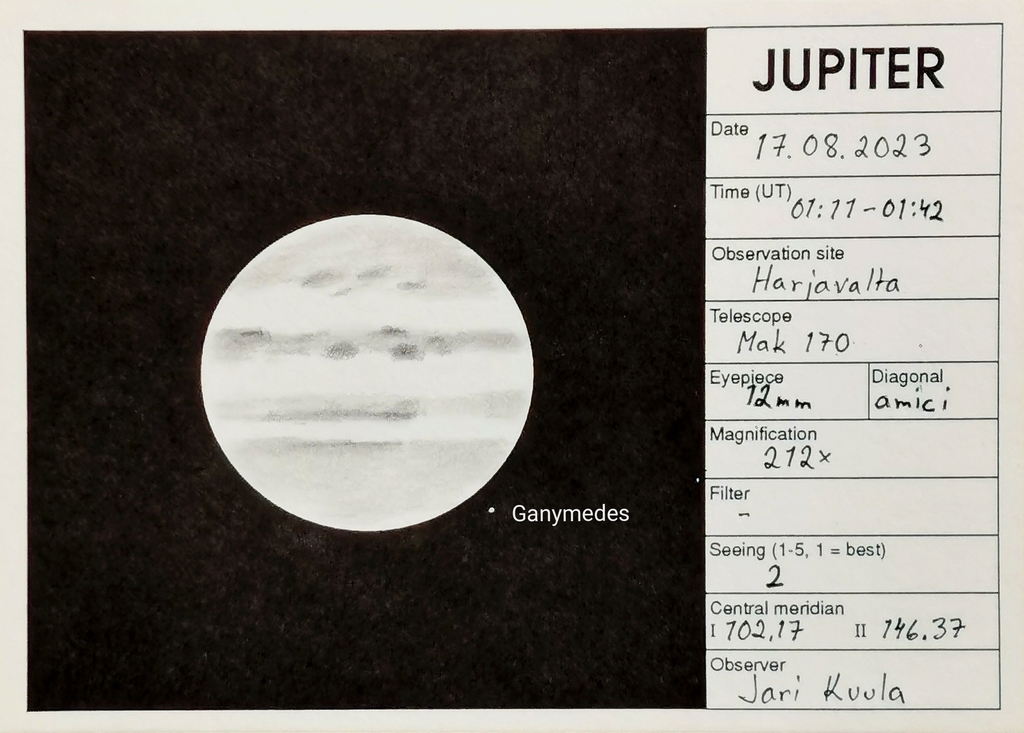 JUPITER
Date 17.08.2023
Time (UT) 01:11-01:42
Observation site
Harjavalta
Telescope
Mak 170
Eyepiece 12mm
Diagonal amici
Magnification
212x
Filter
-
Seeing (1-5, 1 = best)
2
Central meridian
I 102,17 II 146.37
Observer
Jari Kuula
Ganymedes